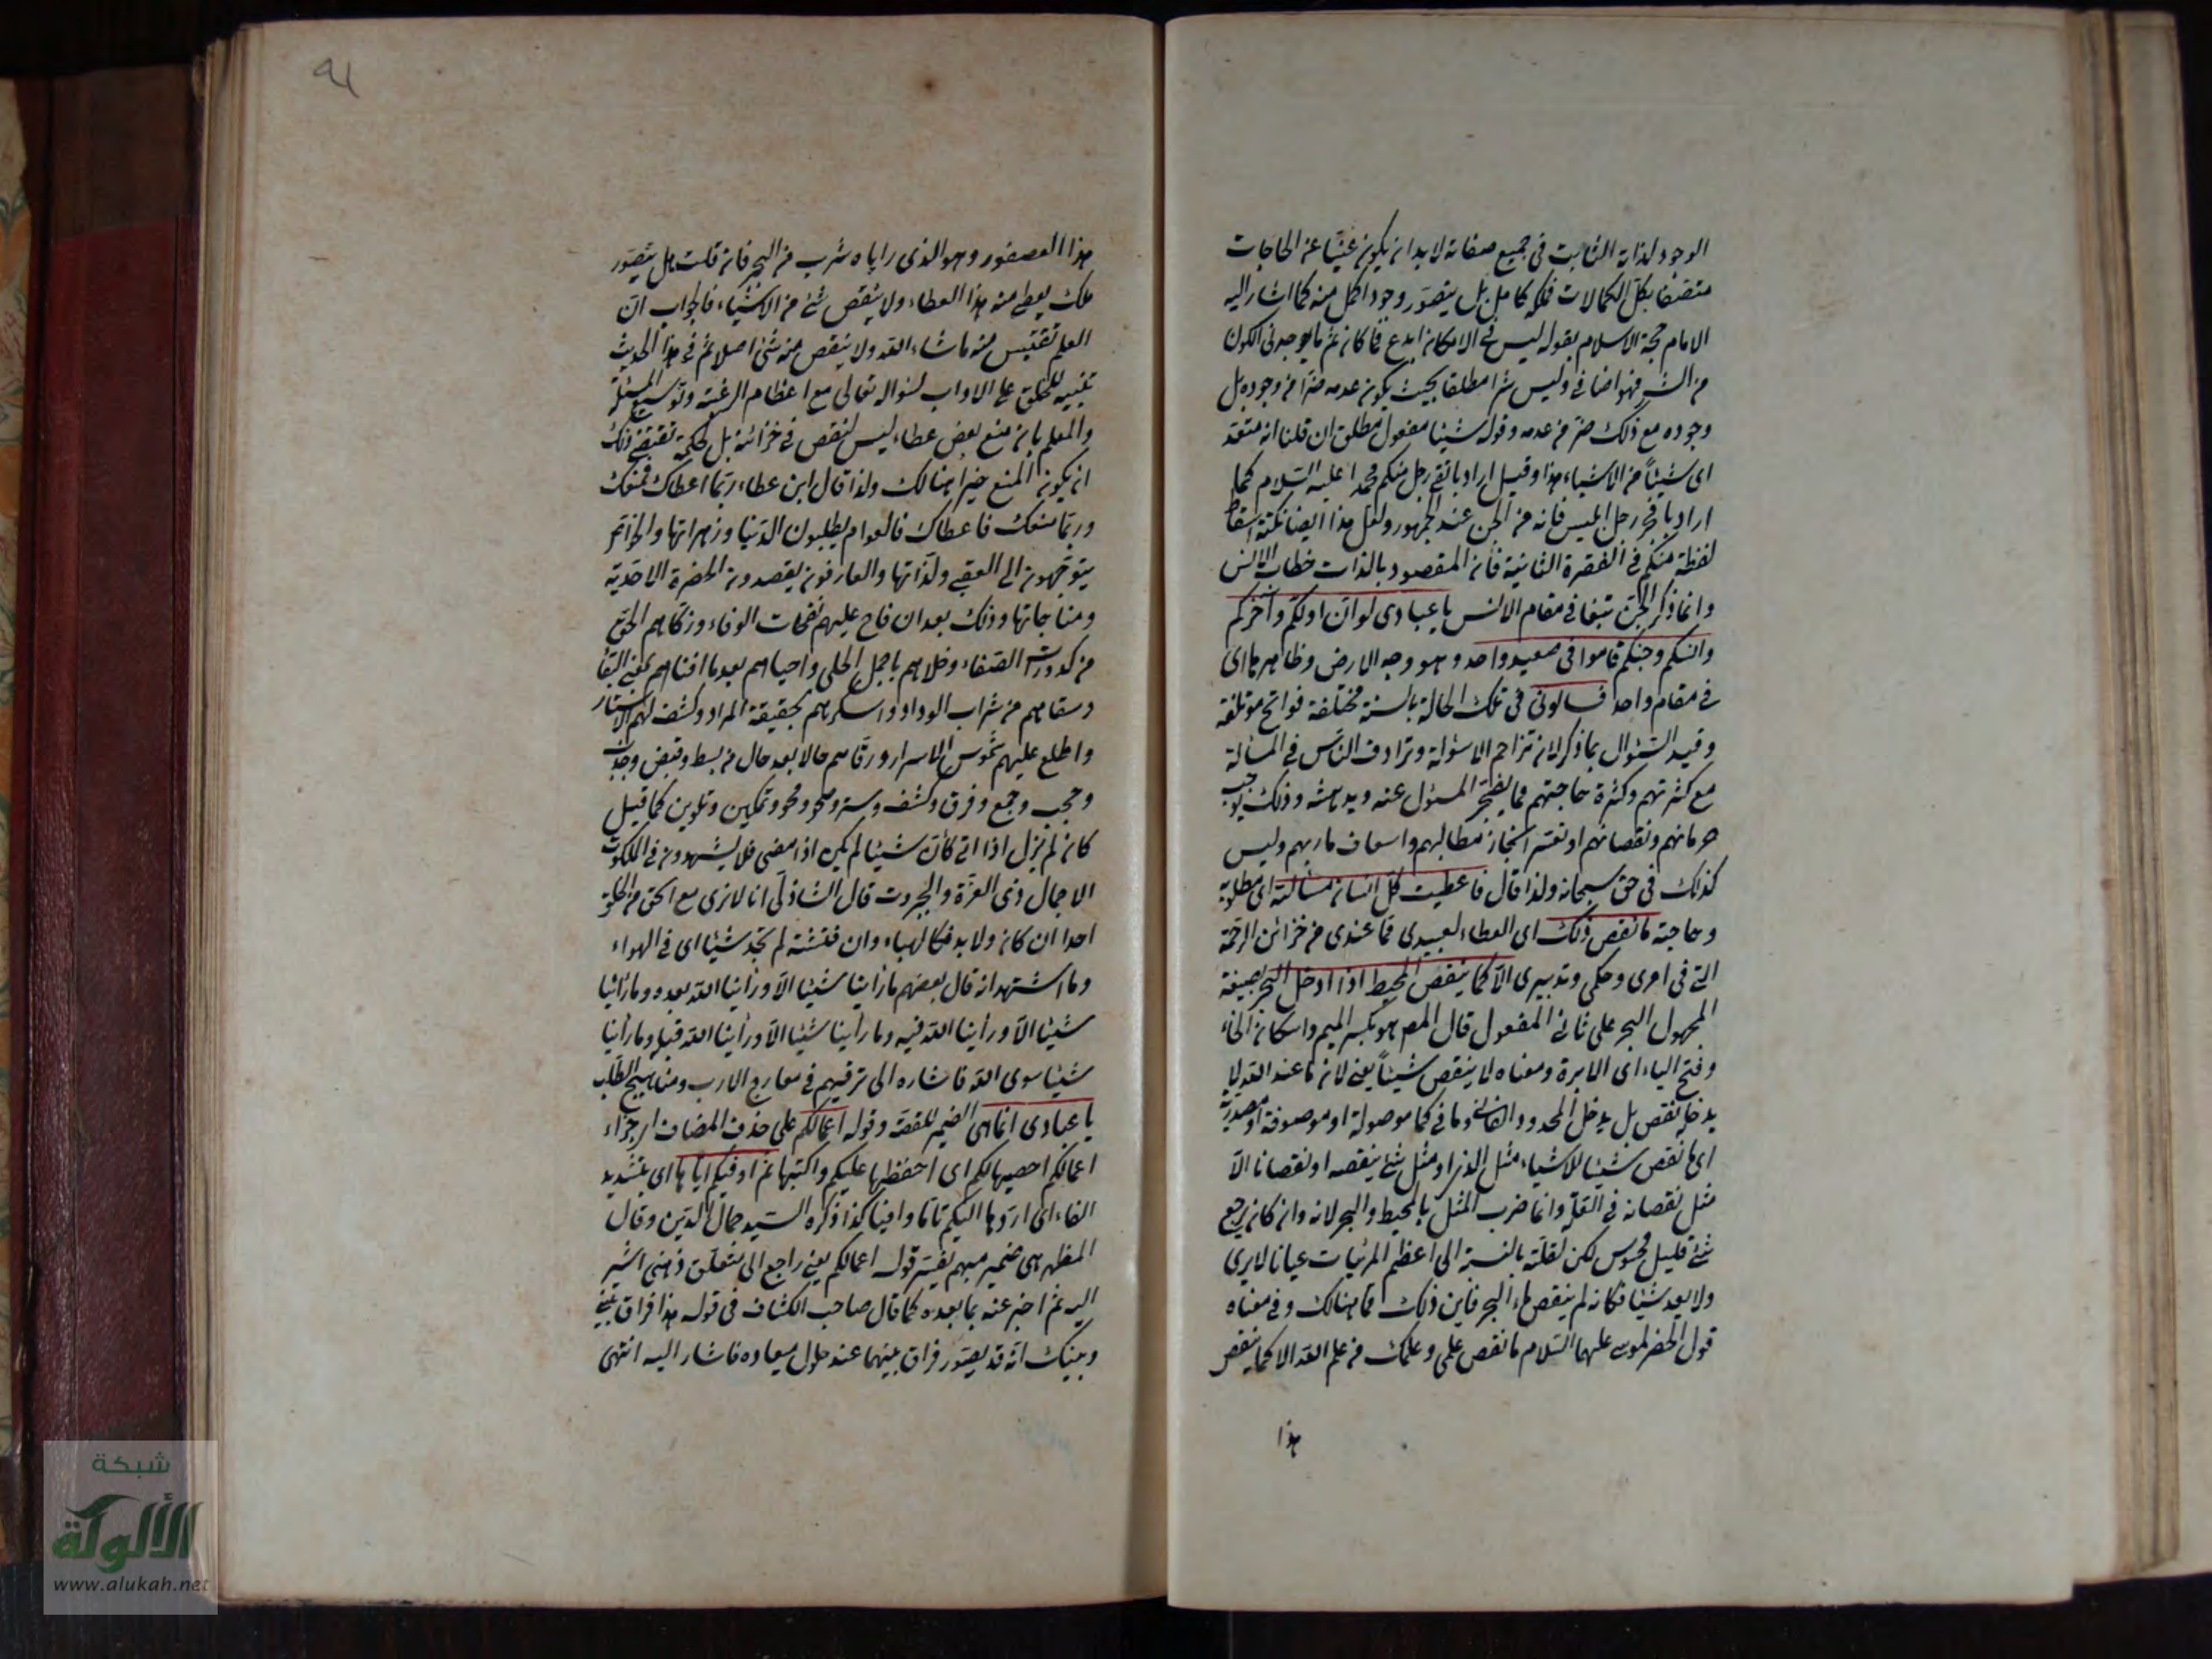 الوجود لذاته الثابت في جميع صفاته لابد ان يكون غنيا عن الحاجات
متصفا بكل الكمالات فملكه كامل بل يتصور وجود اكمل منه كما اشار اليه
الامام حجة الاسلام بقوله ليس في الامكان ابدع مما كان ثم ما يوجد في الكون
من الشر فهو اضافي وليس شرا مطلقا بحيث يكون عدمه خيرا من وجوده بل
وجوده مع ذلك خير من عدمه وقوله شيئا مفعول مطلق ان قلنا انه متعد
اي شيئا من الاشياء هذا وقيل اراد باتقى رجل منكم محمدا عليه السلام كما
اراد بافجر رجل ابليس فانه من الجن عند الجمهور ولعل هذا ايضا نكتة اسقاط
لفظة منكم في الفقرة الثانية فان المقصود بالذات خطاب الانس
وانما ذكر الجن تبعا في مقام الانس يا عبادي لو ان اولكم وآخركم
وانسكم وجنكم قاموا في صعيد واحد وهو وجه الارض وظاهرها اي
في مقام واحد فسالوني في تلك الحالة بالسنة مختلفة مؤتلفة
وقيد السؤال بما ذكر لان تزاحم الاسئولة وترادف الناس في المسألة
مع كثرتهم وكثرة حاجتهم مما يضجر المسئول عنه ويدهشه وذلك يوجب
حرمانهم ونقصانهم او تعسر انجاز مطالبهم واسعاف ماربهم وليس
كذلك في حق سبحانه ولذا قال فاعطيت كل انسان مسألته اي مطلوبه
وحاجته ما نقص ذلك اي العطاء لعبيدي مما عندي من خزائن الرحمة
التي في امري وحكمي وتدبيري الا كما ينقص المخيط اذا ادخل البحر بصيغة
المجهول البحر على ثاني المفعول قال المص هو بكسر الميم واسكان الخاء
وفتح الياء اي الابرة ومعناه لا ينقص شيئا يعني لان ما عند الله لا
يدخله نقص بل يدخل المحدود الفاني وما في كما موصولة او موصوفة او مصدرية
اي ما نقص شيئا للاشياء مثل الذي او مثل شئ ينقصه او نقصانا الا
مثل نقصانه في القلة وانما ضرب المثل بالمخيط والبحر لانه وان كان يرجع
شئ قليل محسوس لكن لقلته بالنسبة الى اعظم المرئيات عيانا لا يرى
ولا يعد شيئا فكانه لم ينقص ماء البحر فاين ذلك مما هنالك وفي معناه
قول الخضر لموسى عليهما السلام ما نقص علمي وعلمك من علم الله الا كما ينقص
هذا
هذا العصفور وهو الذي راياه شرب من البحر فان قلت هل يتصور
ملك يعطي منه هذا العطاء ولا ينقص شئ من الاشياء فالجواب ان
العلم تقتبس منه ما شاء الله ولا ينقص منه شئ اصلا ثم في هذا الحديث
تنبيه للخلق على الاداب لسؤاله تعالى مع اعظام الرغبة وتوسيع المسئلة
والمعلم بان منع بعض عطاء ليس لنقص في خزائنه بل لحكمة تقتضي ذلك
ان يكون المنع خيرا هنالك ولذا قال ابن عطاء ربما اعطاك فمنعك
وربما منعك فاعطاك فالعوام يطلبون الدنيا وزهراتها والخواص
يتوجهون الى العقبى ولذاتها والعارفون يقصدون الحضرة الاحدية
ومناجاتها وذلك بعد ان فاح عليهم نفحات الوفاء وزكاهم الحق
من كدورات الصفاء وحلاهم باجمل الحلى واحياهم بعد ما افناهم بمعنى البقاء
وسقاهم من شراب الوداد واسكرهم بحقيقة المراد وكشف لهم الاستار
واطلع عليهم شموس الاسرار ورقاهم حالا بعد حال من بسط وقبض
وحجب وجمع وفرق وكشف وستر وصحو ومحو وتمكين وتلوين كما قيل
كان لم يزل اذا اتى كأن شيئا لم يكن اذا مضى فلا يشهدون في الملكوت
الا جمال ذي العزة والجبروت قال الشاذلي انا لا نرى مع الحق من الخلق
احدا ان كان ولا بد فكالهباء وان فتشته لم تجد شيئا اي في الهواء
وما اشتهر انه قال بعضهم ما رأينا شيئا الا ورأينا الله بعده وما رأينا
شيئا الا ورأينا الله فيه وما رأينا شيئا الا ورأينا الله قبله وما رأينا
شيئا سوى الله فاشاره الى ترقيهم في معارج الارب ومناهيج الطلب
يا عبادي انما هي الضمير للقصة وقوله اعمالكم على حذف المضاف اي جزاء
اعمالكم احصيها لكم اي احفظها عليكم واكتبها ثم اوفيكم اياها اي بتشديد
الفاء اي اردها اليكم تاما وافيا كذا ذكره السيد جمال الدين وقال
المظهر هي ضمير مبهم يفسره قوله اعمالكم يعني راجع الى متعلق ذهني اشير
اليه ثم اخبر عنه بما بعده كما قال صاحب الكشاف في قوله هذا فراق بيني
وبينك انه قد يصور فراق بينهما عند حلول ميعاده فاشار اليه انتهى
شبكة
الألوكة
www.alukah.net